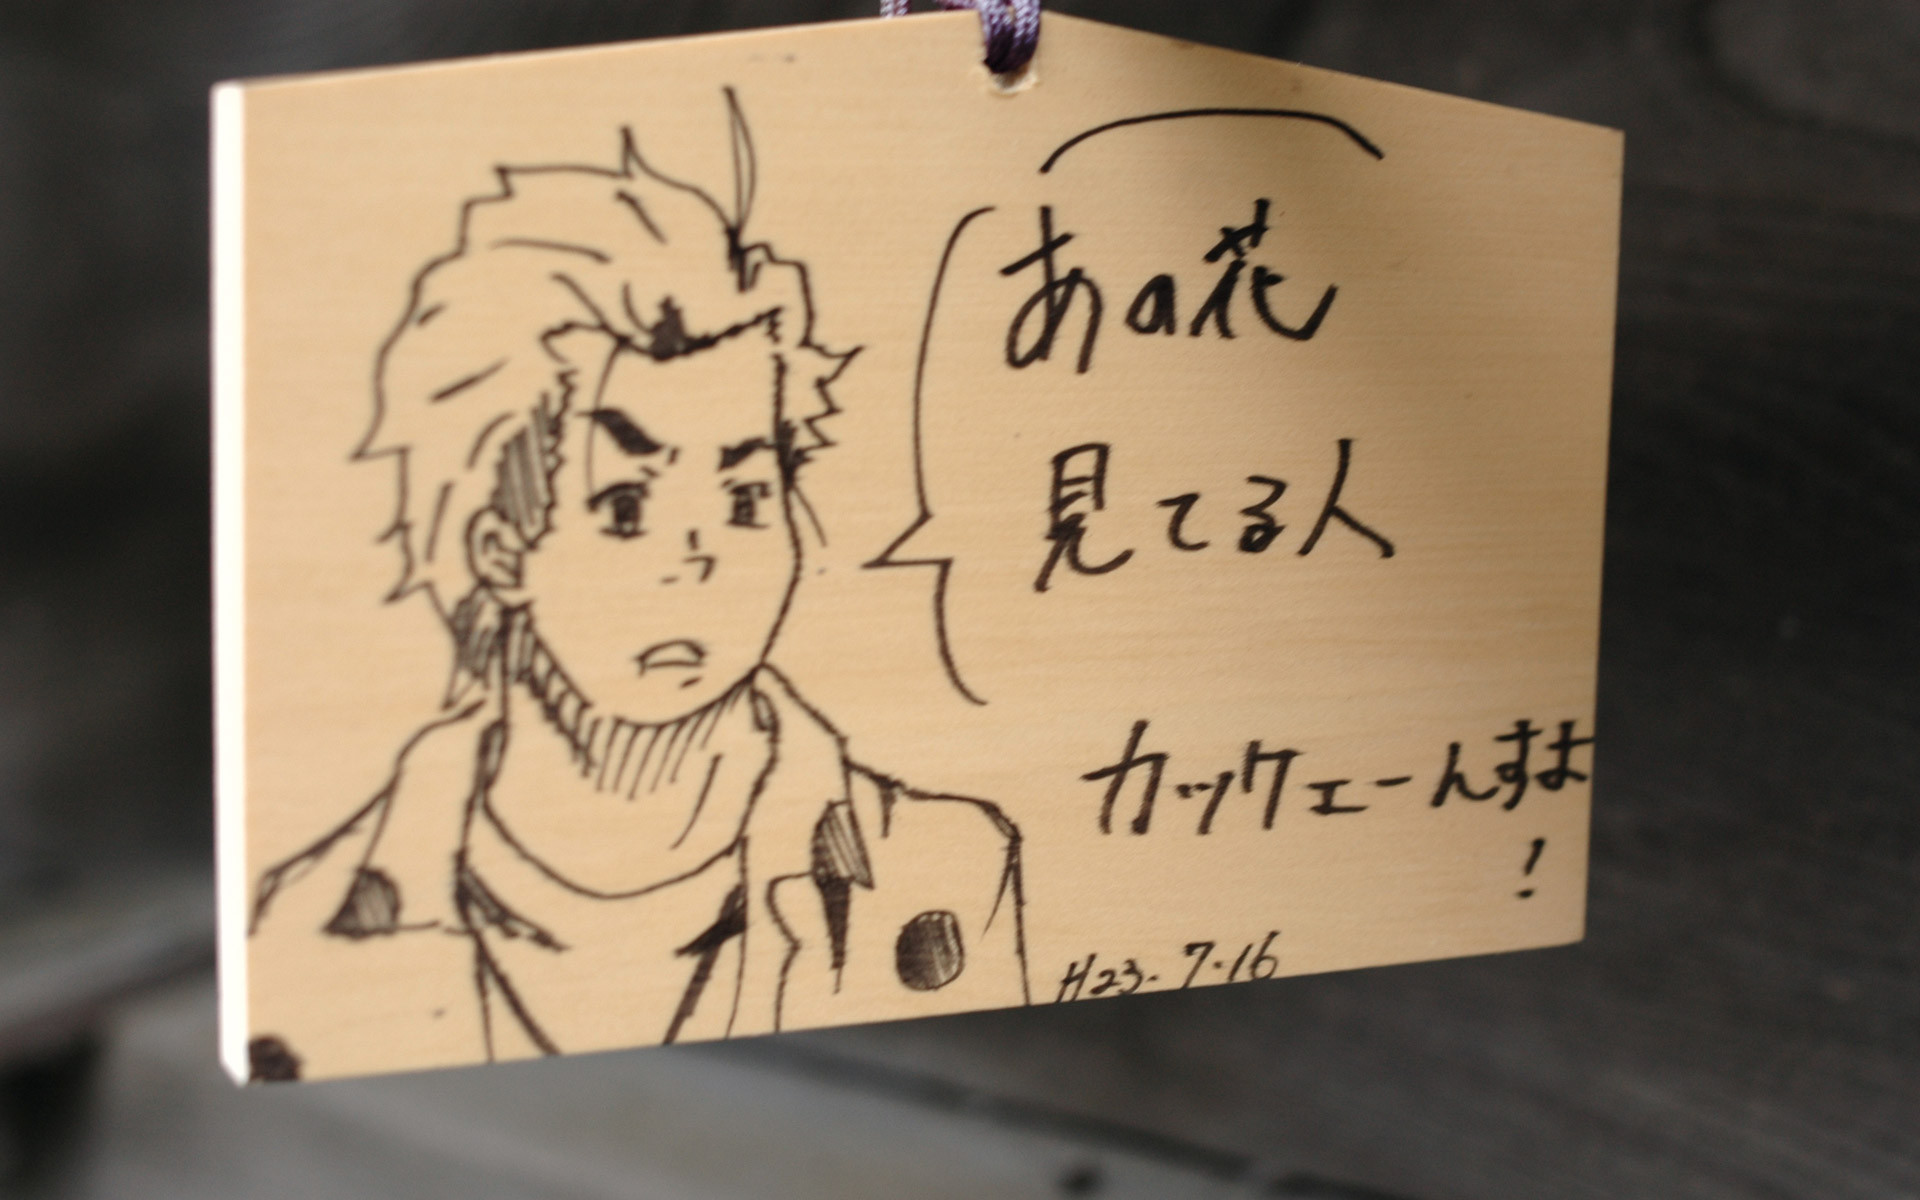 あの花
見てる人
カックェーんすよ
!
H23.7.16